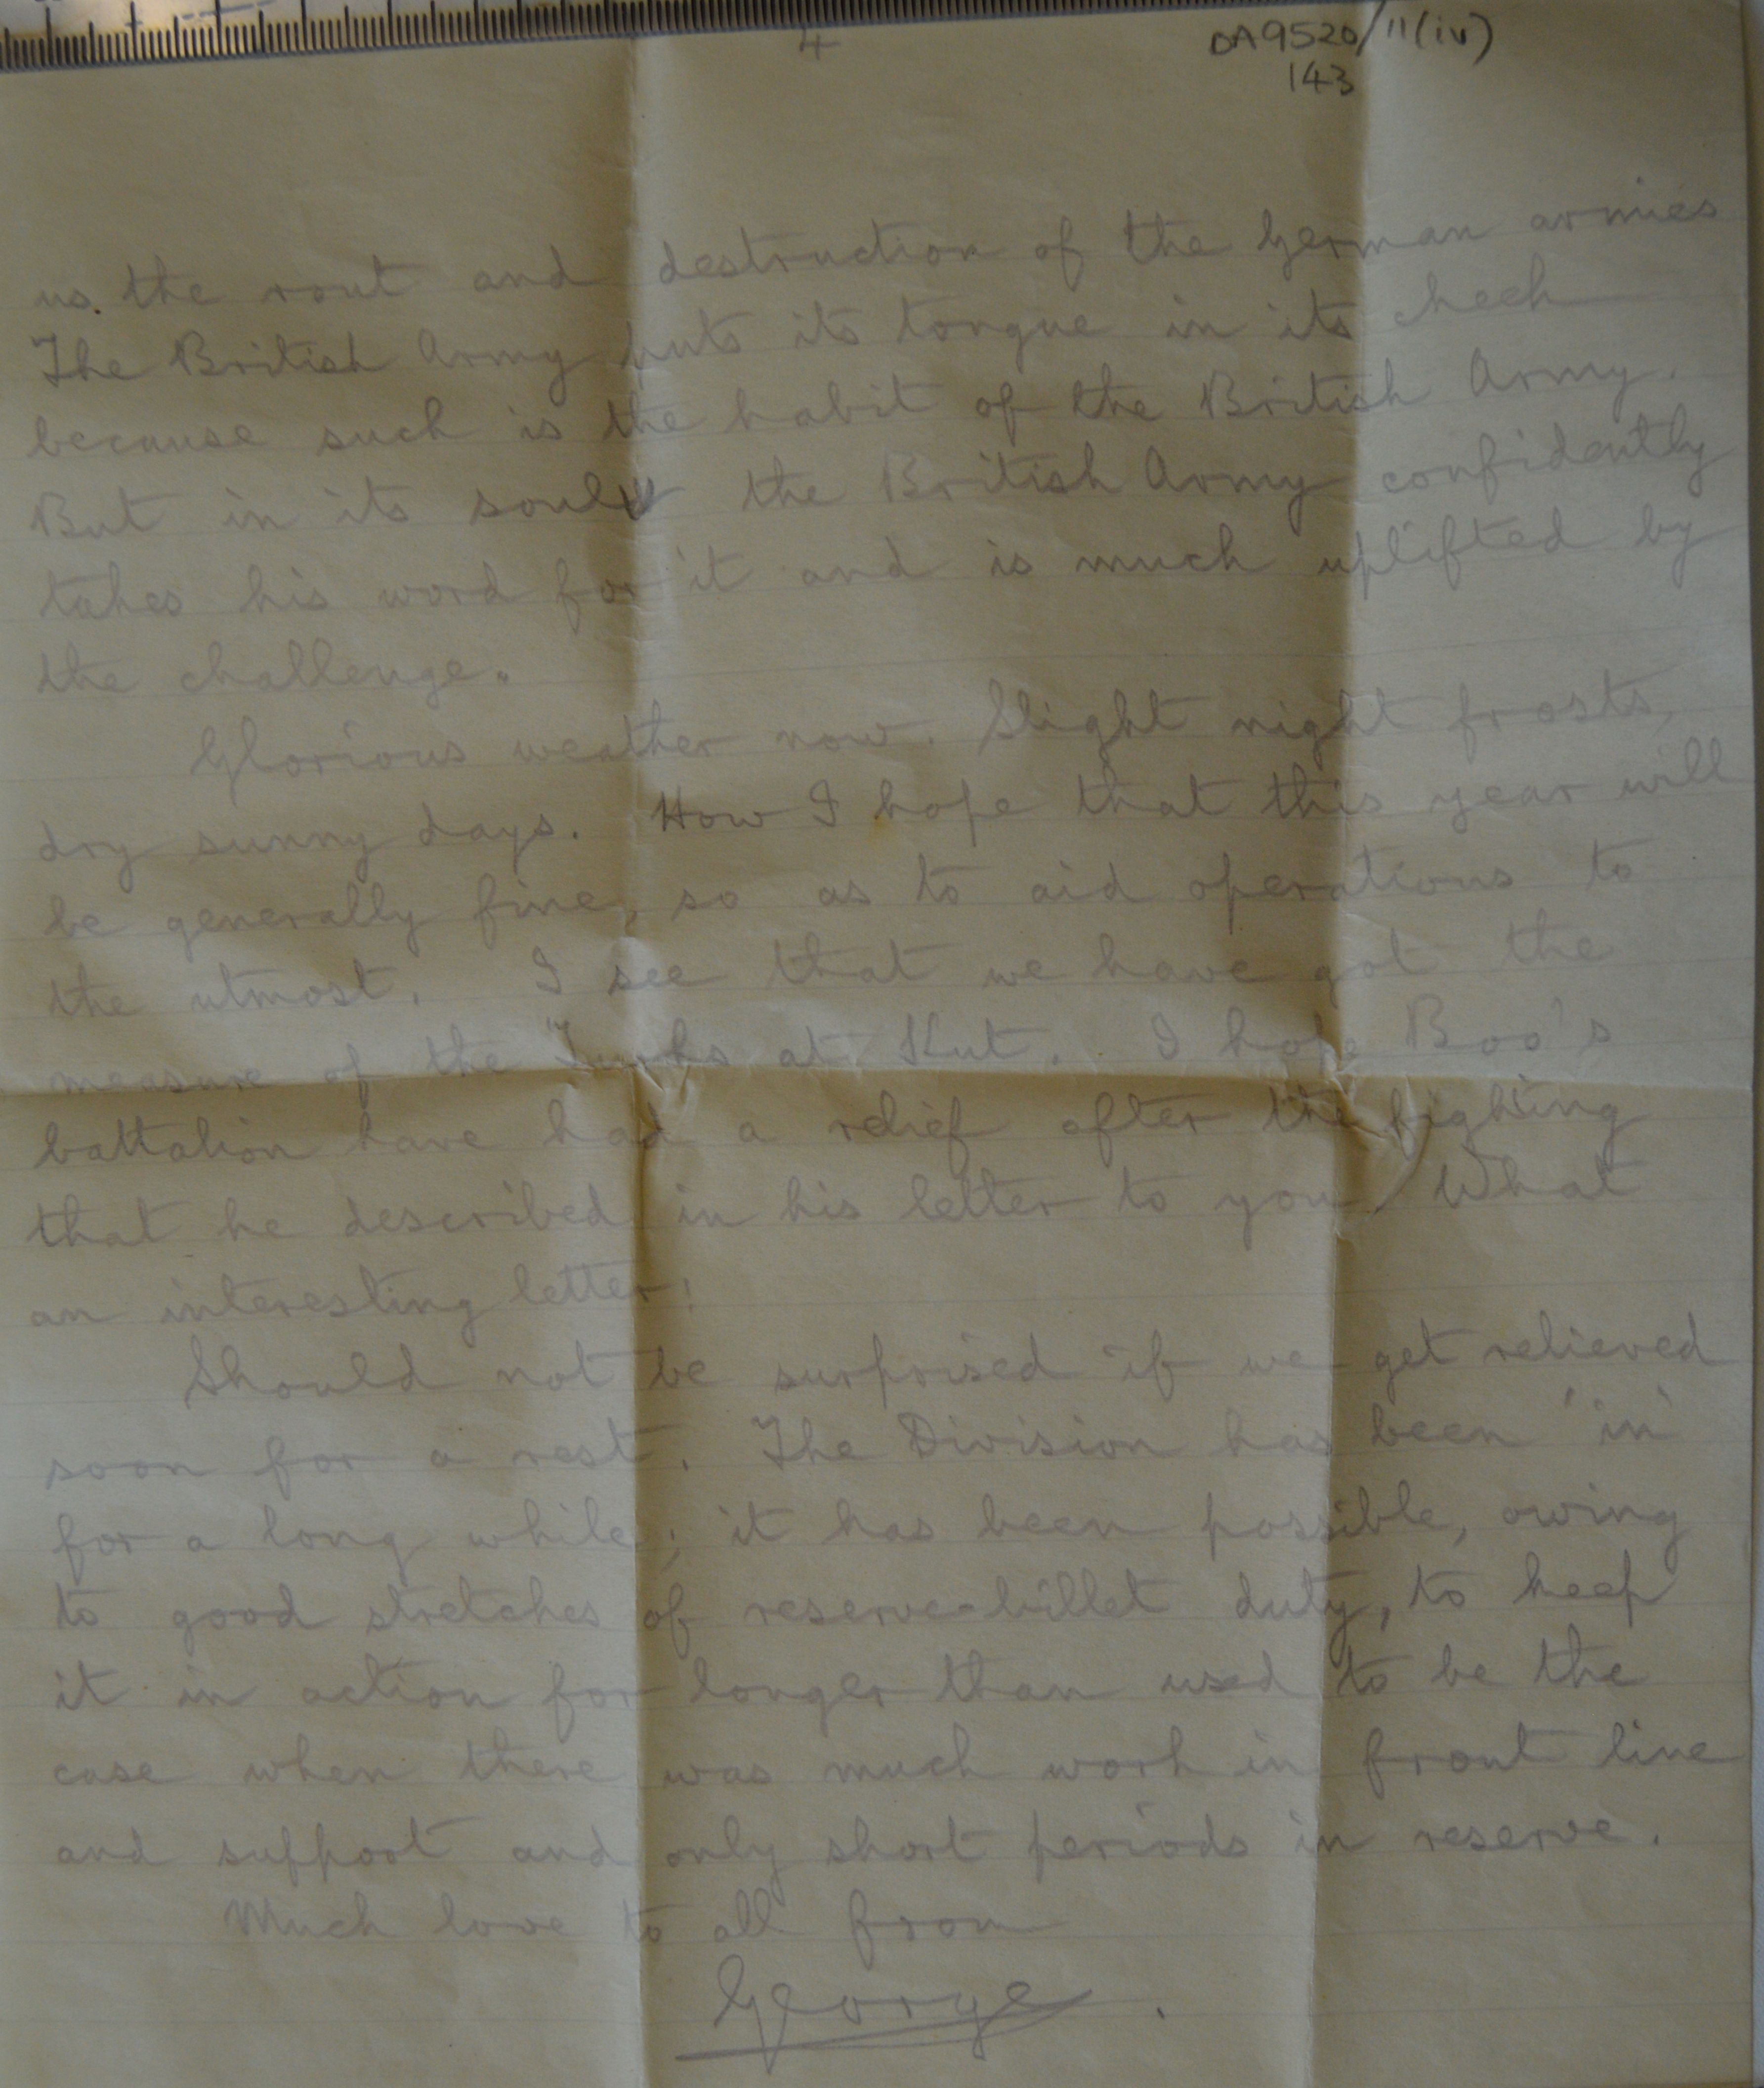 4
DA9520/11(iv)
143
us. the rout and destruction of the German armies
The British Army puts its tongue in its cheek
because such is the habit of the British Army.
But in its soul the British Army confidently
takes his word for it and is much uplifted by
the challenge.
Glorious weather now. Slight night frosts,
dry sunny days. How I hope that this year will
be generally fine, so as to aid operations to
the utmost. I see that we have got the
measure of the Turks at Kut. I hope Boo's
battalion have had a relief after the fighting
that he described in his letter to you. What
an interesting letter!
Should not be surprised if we get relieved
soon for a rest. The Division has been 'in'
for a long while; it has been possible, owing
to good stretches of reserve-billet duty, to keep
it in action for longer than used to be the
case when there was much work in front line
and support and only short periods in reserve.
Much love to all from
George.